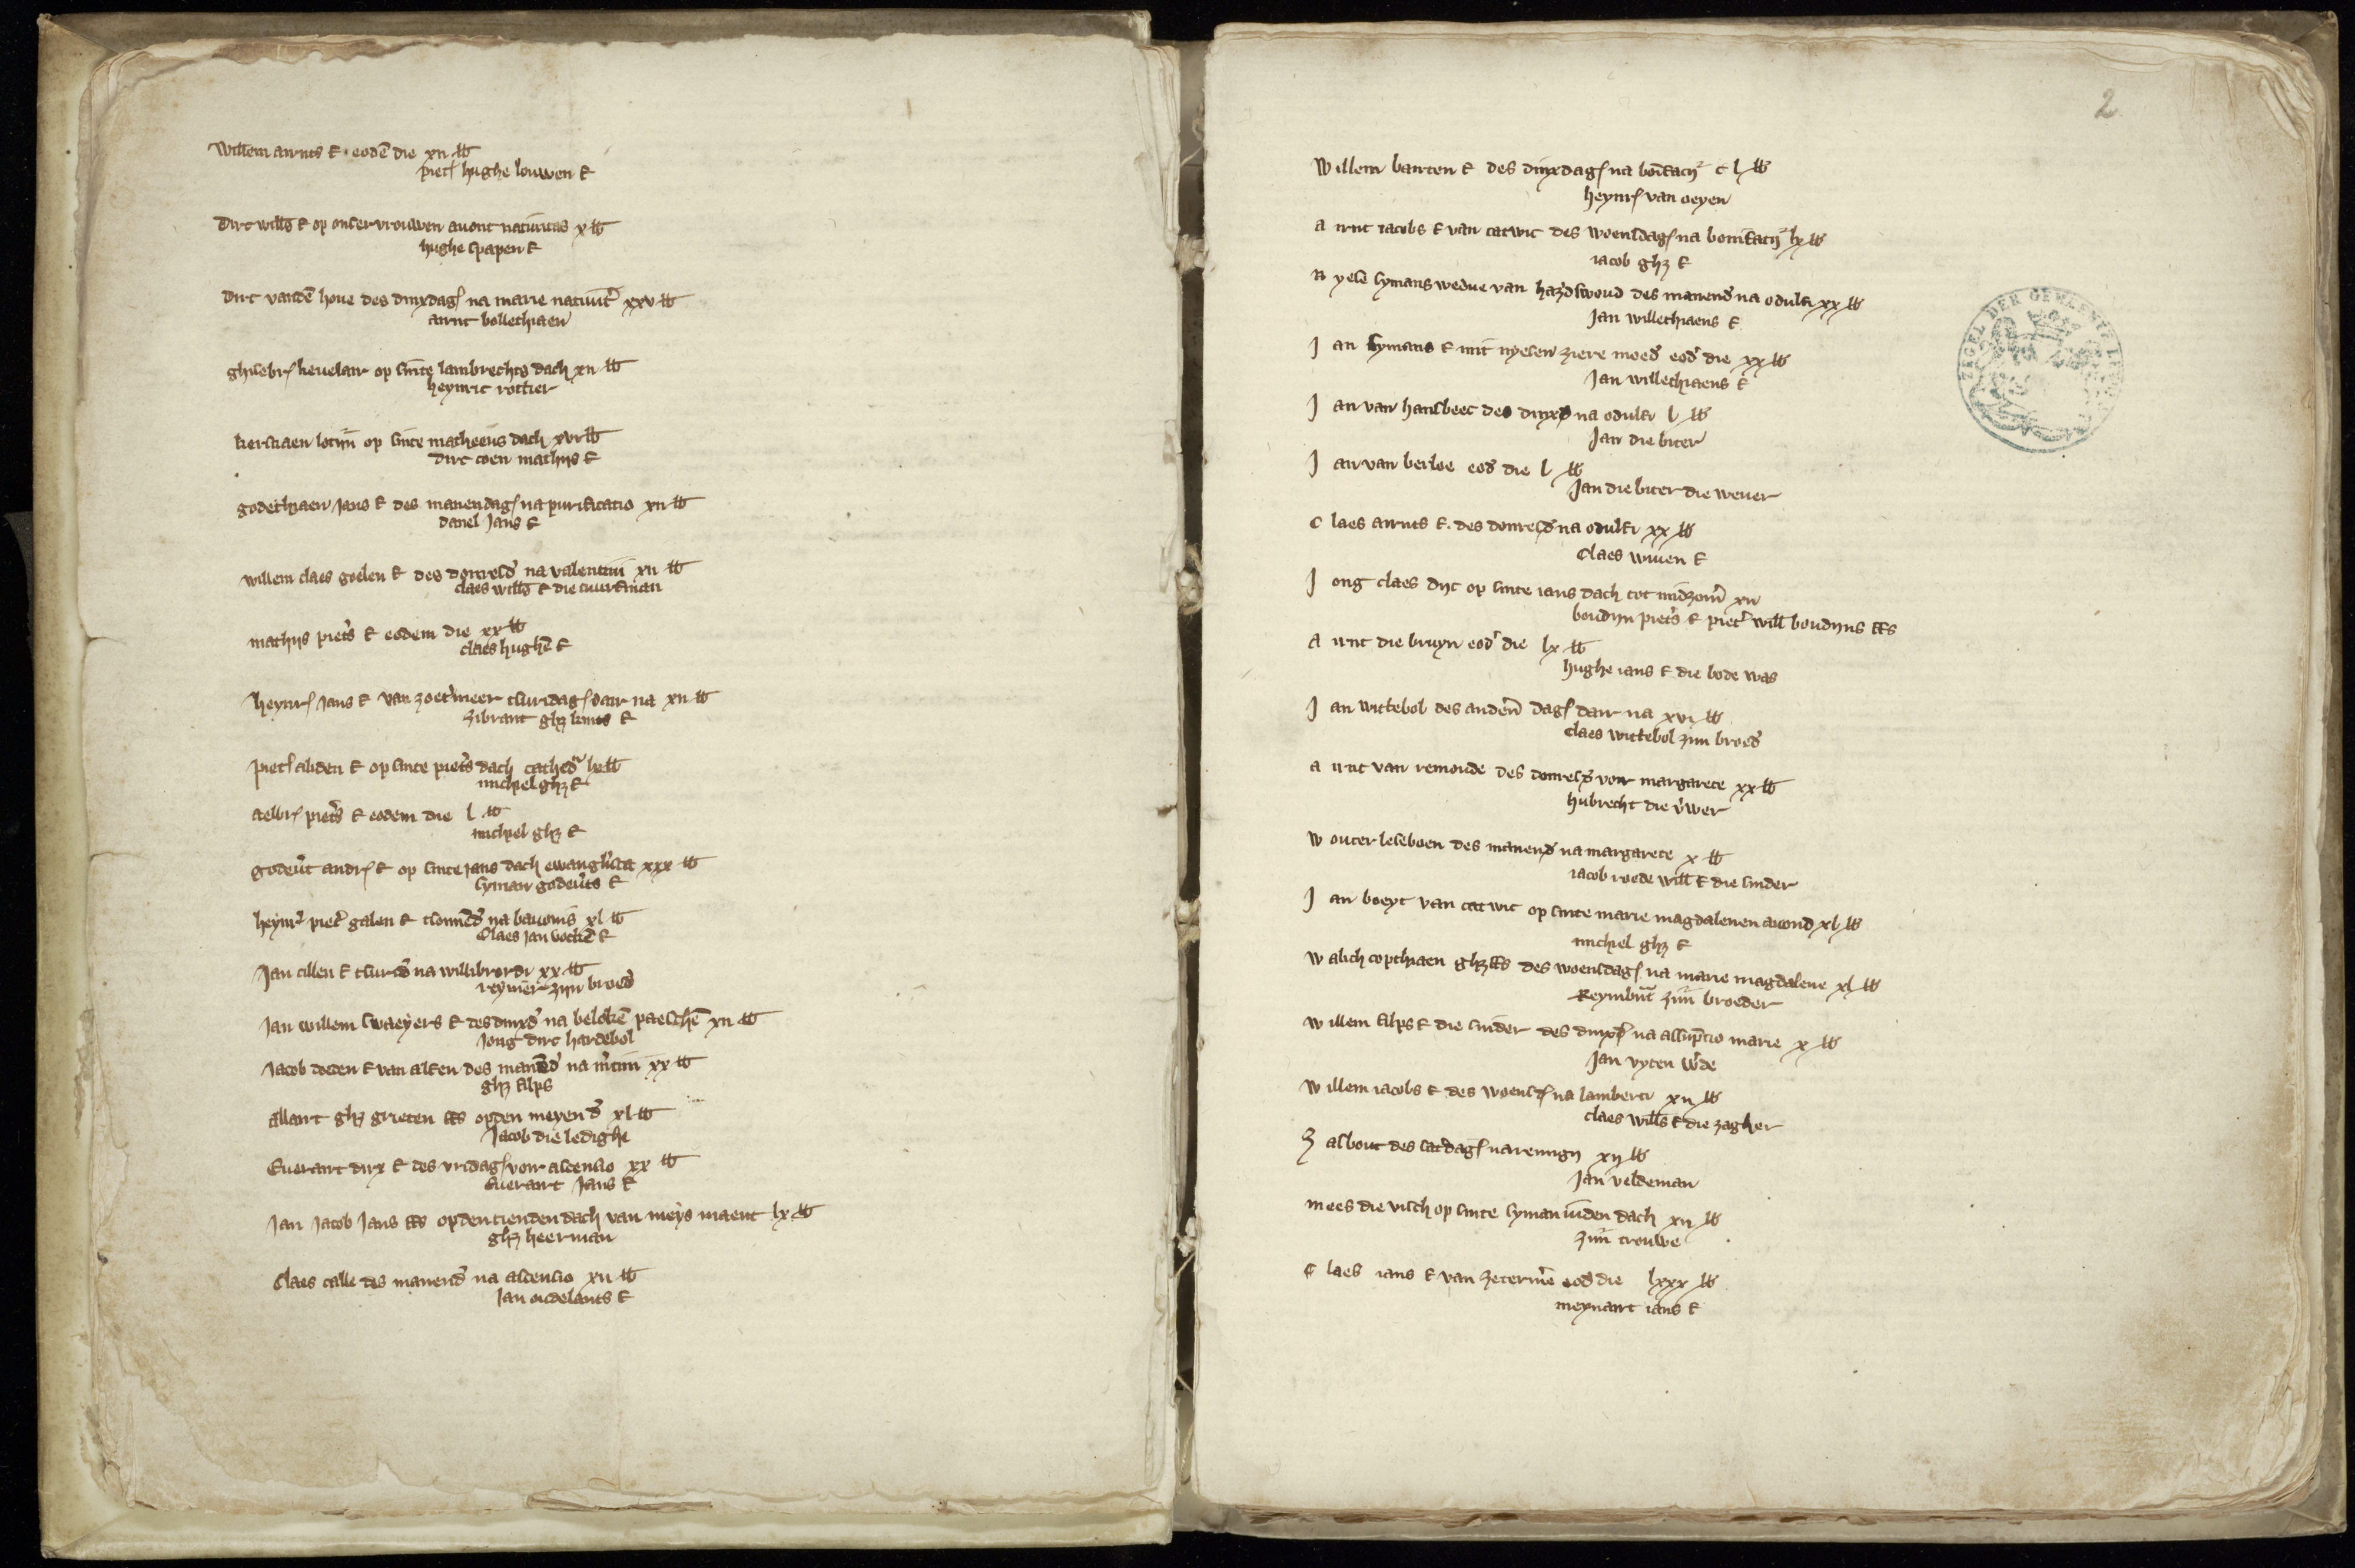 Willem airnts f. eodē die xij lb
piet' hughe louwen f
dirc willēs f op onser vrouwen auont natiuitas x lb
hughe spapen f
dirc vandē houe des dinxdag' na marie natiuit' xxv lb
airnt bollethiaen
ghisebr' heuelair op sinte lambrechts dach xij lb
heynric rottier
kerstiaen lotijn op sinte matheeus dach xvi lb
dirc coen mathijs f
godethiaen Jans f des manendag' na purificatio xij lb
danel Jans f
willem claes goelen f des donresd' na valentini xij lb
claes willēs f die cuurfman
mathijs piet's f eodem die xx lb
claes hughē f
heynr' Jans f van zoet'meer tsuridag' dair na xij lb
zibrant ghz f
piet' aliden f op sinte piet's dach cathed' lx lb
michiel ghz f
aelbr' piet's f eodem die l lb
michiel ghz f
godeu't andr' f op sinte jans dach ewangl'ista xxx lb
syman godeu'ts f
heynr' piet' galen f tsonnēd' na bauonis xl lb
Claes Jan f
Jan cillen f tsurid' na willibrordi xx lb
reyner zijn broed'
Jan willem swaeyers f des dinxd' na belokē paeschē xij lb
Jong dirc hardebol
Jacob doeden f van alfen des manēd' na m'tini xx lb
ghz
allairt ghz grieten ss opden meyend' xl lb
Jacob die ledighe
Euerairt dirx f des vridag' voir ascensio xx lb
Euerairt Jans f
Jan Jacob Jans ss opden tienden dach van meys maent lx lb
ghz heerman
Claes calle des manend' na ascensio xij lb
Jan f
2
Willem banten f des dinxdag' na bonifacij c l lb
heynr' van oeyen
Airnt iacobs f van catwic des woensdag' na bonifacij lx lb
iacob ghz f
Nyese symans wedue van hazdswoud des manend' na odulfi xx lb
Jan willethiaens f
Jan symans f mit nyesen ziere moed' eod' die xx lb
Jan willethiaens f
Jan van hansbeec des dinxd' na odulfi l lb
Jan die biter
Jan van berloe eod' die l lb
Jan die biter die weuer
Claes airnts f. des donresd' na odulfi xx lb
Claes wiuen f
Jong claes dijc op sinte ians dach tot midzom' xij
boudijn piet's f piet' will boudijns ss
Airnt die bruyn eod' die lx lb
hughe ians f die bode was
Jan wittebol des anderē dag' dair na xvi lb
Claes wittebol zijn broed'
Airnt van remonde des donresd' voir margarete xx lb
hubrecht die v'wer
Wouter leseboen des manend' na margarete x lb
iacob roede will f die snider
Jan boeyt van catwic op sinte marie magdalenen auond xl lb
michiel ghz f
Walich copthiaen ghz ss des woensdag' na marie magdalene xl lb
Reymbu't zijn broeder
Willem f die snider des dinxd' na assūptio marie x lb
Jan vyten w'de
Willem iacobs f des woensd' na lamberti xij lb
claes willēs f die zagher
Zasbout des sat'dag' na remigij xij lb
Jan veldeman
Mees die visch op sinte symaniuden dach xij lb
zijn trouwe
Claes ians f van zeterme' eod' die lxxx lb
meynairt ians f
ZEGEL DER GEMEENTE